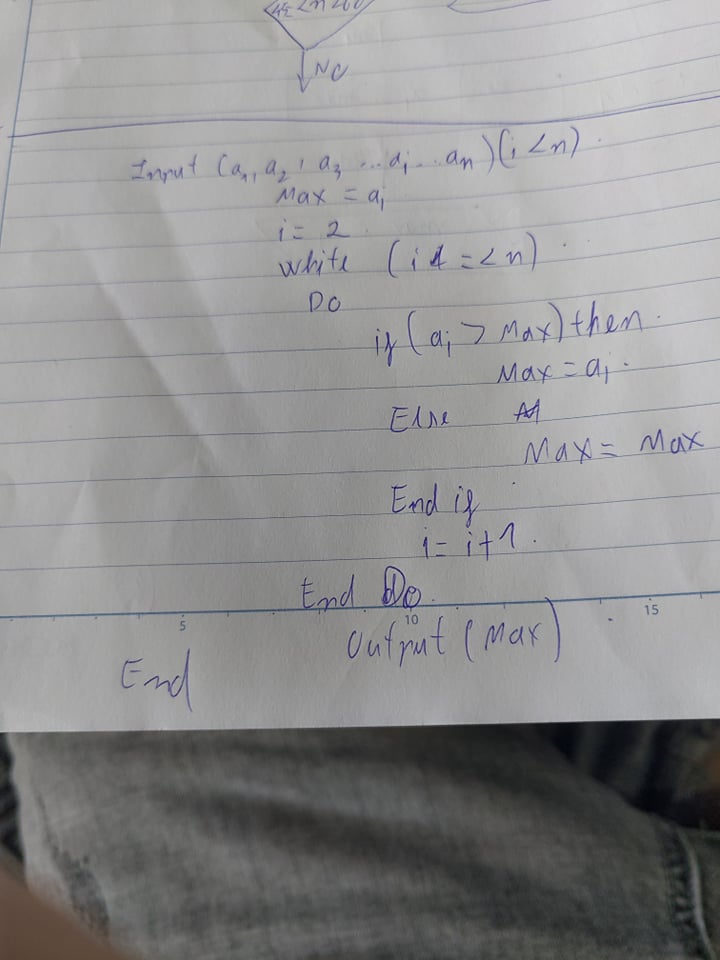 NO
Input (a₁, a₂, a₃ ... aᵢ ... aₙ) (i < n).
Max = aᵢ
i = 2
white (i = < n)
DO
if (aᵢ > Max) then.
Max = aᵢ.
Else
Max = Max
End if
i = i+1.
End Do.
5 10 15
Output (Max)
End